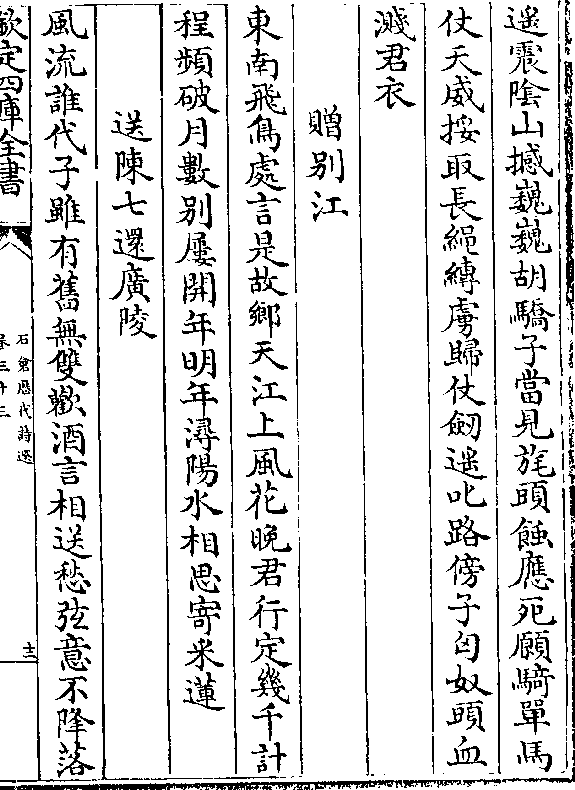 遥震陰山撼巍巍胡驕子當見旄頭蝕應死願騎單馬
仗天威挼取長繩縛虜歸仗劒遥叱路傍子匈奴頭血
濺君衣
贈别江
東南飛鳥處言是故鄉天江上風花晚君行定幾千計
程頻破月數别屢開年明年潯陽水相思寄采蓮
送陳七還廣陵
風流誰代子雖有舊無雙歡酒言相送愁弦意不降落
欽定四庫全書
石倉歴代詩選
卷三十三
十二